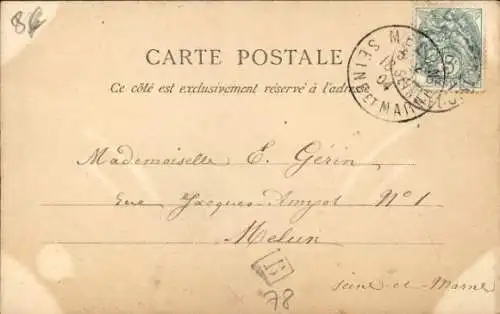 8€
CARTE POSTALE
Ce côté est exclusivement réservé à l'adresse
MELUN
SEINE ET MARNE
04
Mademoiselle E. Gérin
Rue Jacques-Amyot N° 1
Melun
E
78
Seine-et-Marne